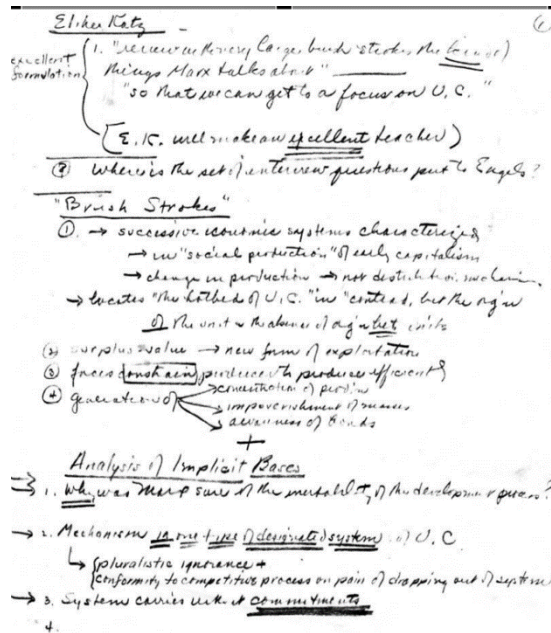 Elihu Katz
excellent formulation
1. "review in the very large brush strokes the kinds of
things Marx talks about"
"so that we can get to a focus on U.C."
(E.K. will make an excellent teacher)
② Where is the set of interview questions put to Engels?
"Brush Strokes"
①. → successive economic systems characterized
→ in "social production" of early capitalism
→ change in production → not distribution
→ locates "the hotbed of U.C." in "
of the unit the absence of
② surplus-value → new form of exploitation
③ forces constrain producer to produce efficiently
④ generation of → concentration of
→ impoverishment of masses
→ awareness of bonds
+
Analysis of Implicit Bases
→ 1. Why was Marx sure of the inevitability of the development process?
→ 2. Mechanism in one type of designated system of U.C
↳ pluralistic ignorance +
conformity to competitive process on pain of dropping out of system
→ 3. System carries without commitments
4.